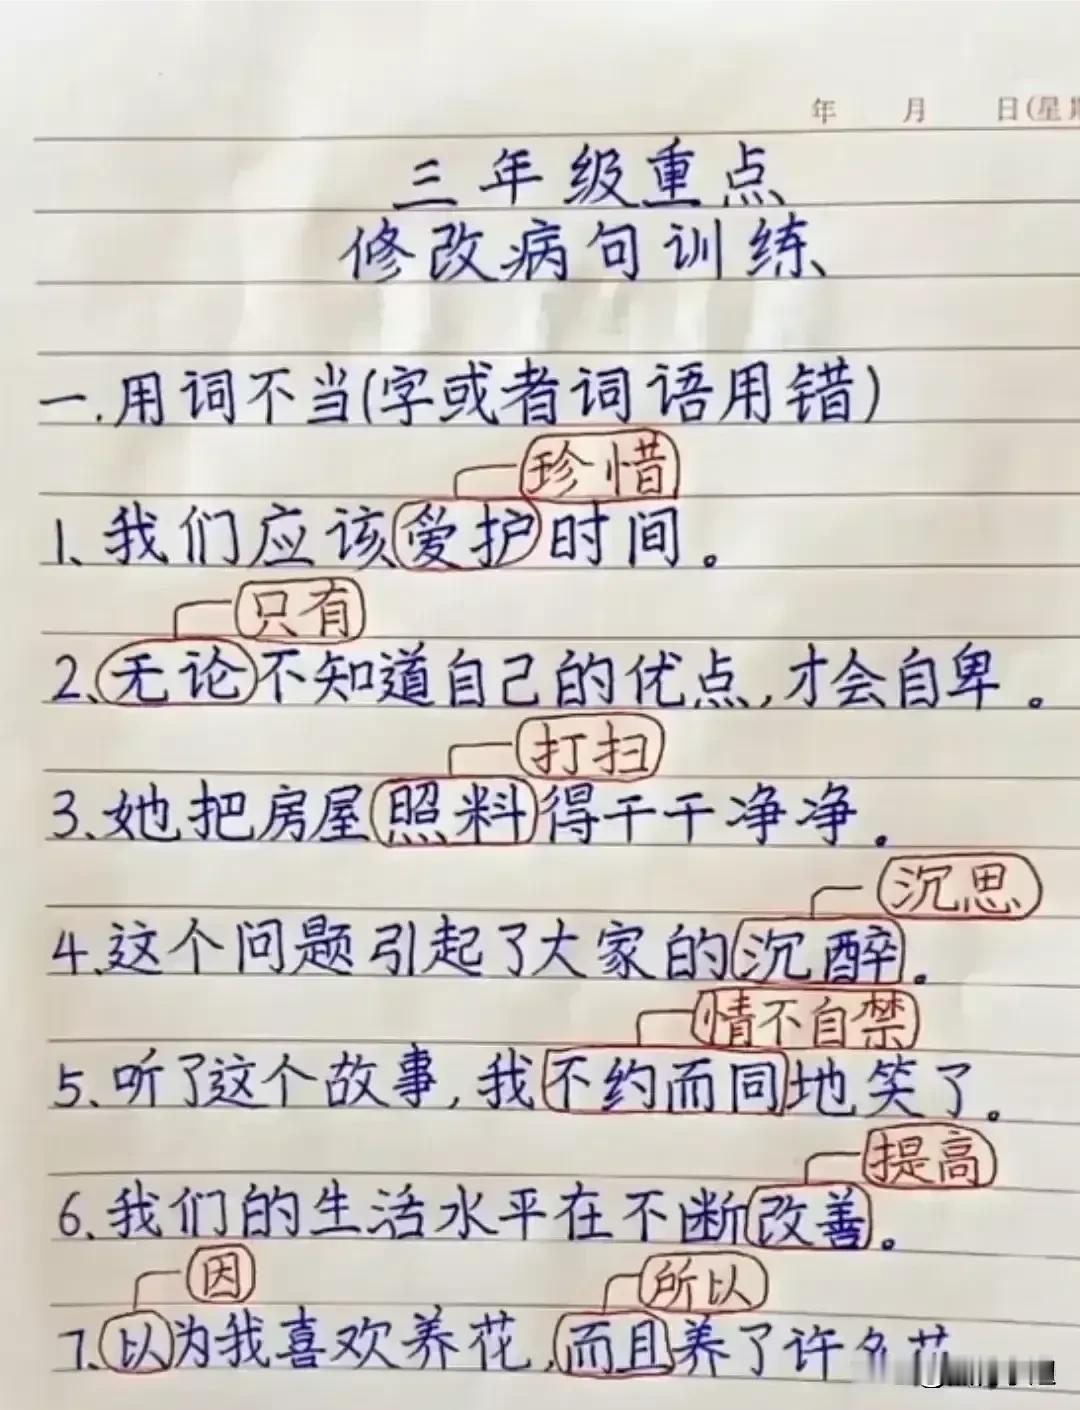 年 月 日(星期
三年级重点
修改病句训练
一.用词不当(字或者词语用错)
珍惜
1、我们应该爱护时间。
只有
2、无论不知道自己的优点,才会自卑。
打扫
3、她把房屋照料得干干净净。
沉思
4、这个问题引起了大家的沉醉。
情不自禁
5、听了这个故事,我不约而同地笑了。
提高
6、我们的生活水平在不断改善。
因 所以
7、以为我喜欢养花,而且养了许多花